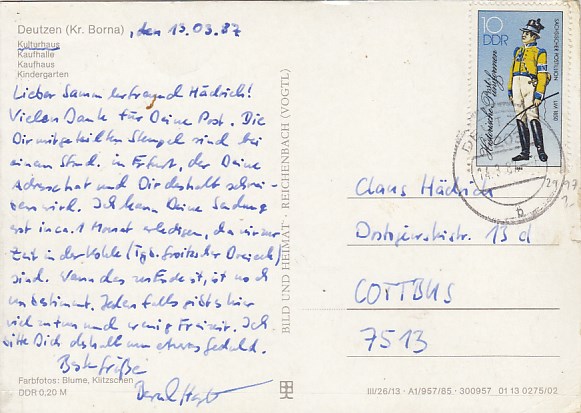 Deutzen (Kr. Borna) , den 13.03.87
Kulturhaus
Kaufhalle
Kaufhaus
Kindergarten
Lieber Sammlerfreund Hädrich!
Vielen Dank für Deine Post. Die
Dir mitgeteilten Stempel sind bei
einem Stud. in Erfurt, der Deine
Adresse hat und Dir deshalb schrei-
ben wird. Ich kann Deine Sendung
erst in ca. 1 Monat erledigen, da wir zur
Zeit in der Kohle (Tgb. Groitzscher Dreieck)
sind. Wann das zu Ende ist, ist noch
unbestimmt. Jedenfalls gibt's hier
viel zu tun und wenig Freizeit. Ich
bitte Dich deshalb um etwas Geduld.
Beste Grüße
Farbfotos: Blume, Klitzschen
DDR 0,20 M
BILD UND HEIMAT · REICHENBACH (VOGTL)
10
DDR
Historische Postuniformen
SÄCHSISCHER POSTILLION
UM 1850
Claus Hädrich
Dostojewskistr. 13 d
COTTBUS
7513
III/26/13 · A1/957/65 · 300957 01 13 0275/02